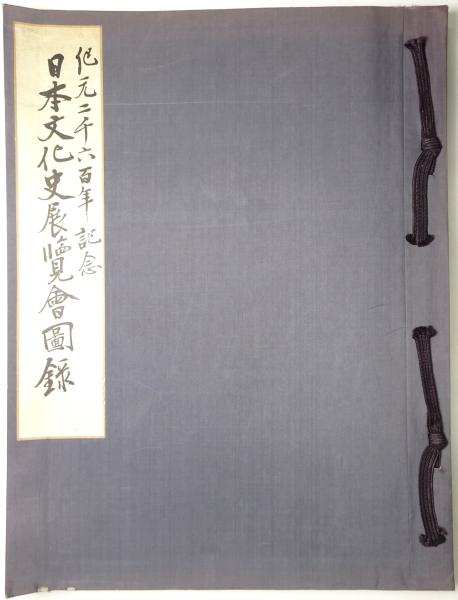 紀元二千六百年記念
日本文化史展覧會圖錄